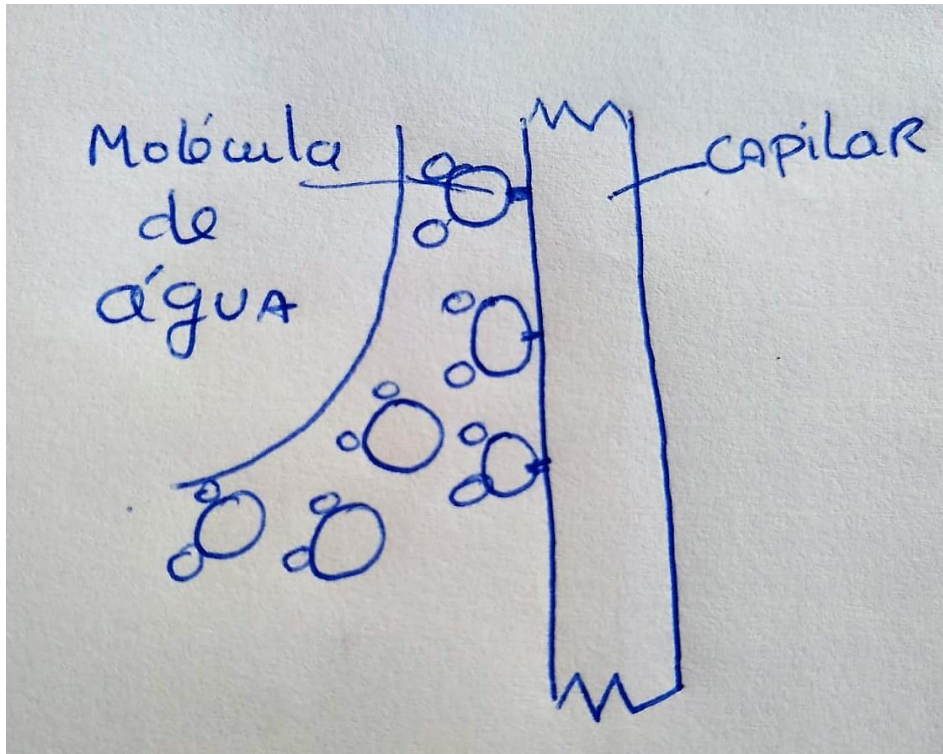 Molécula
de
água
CAPILAR